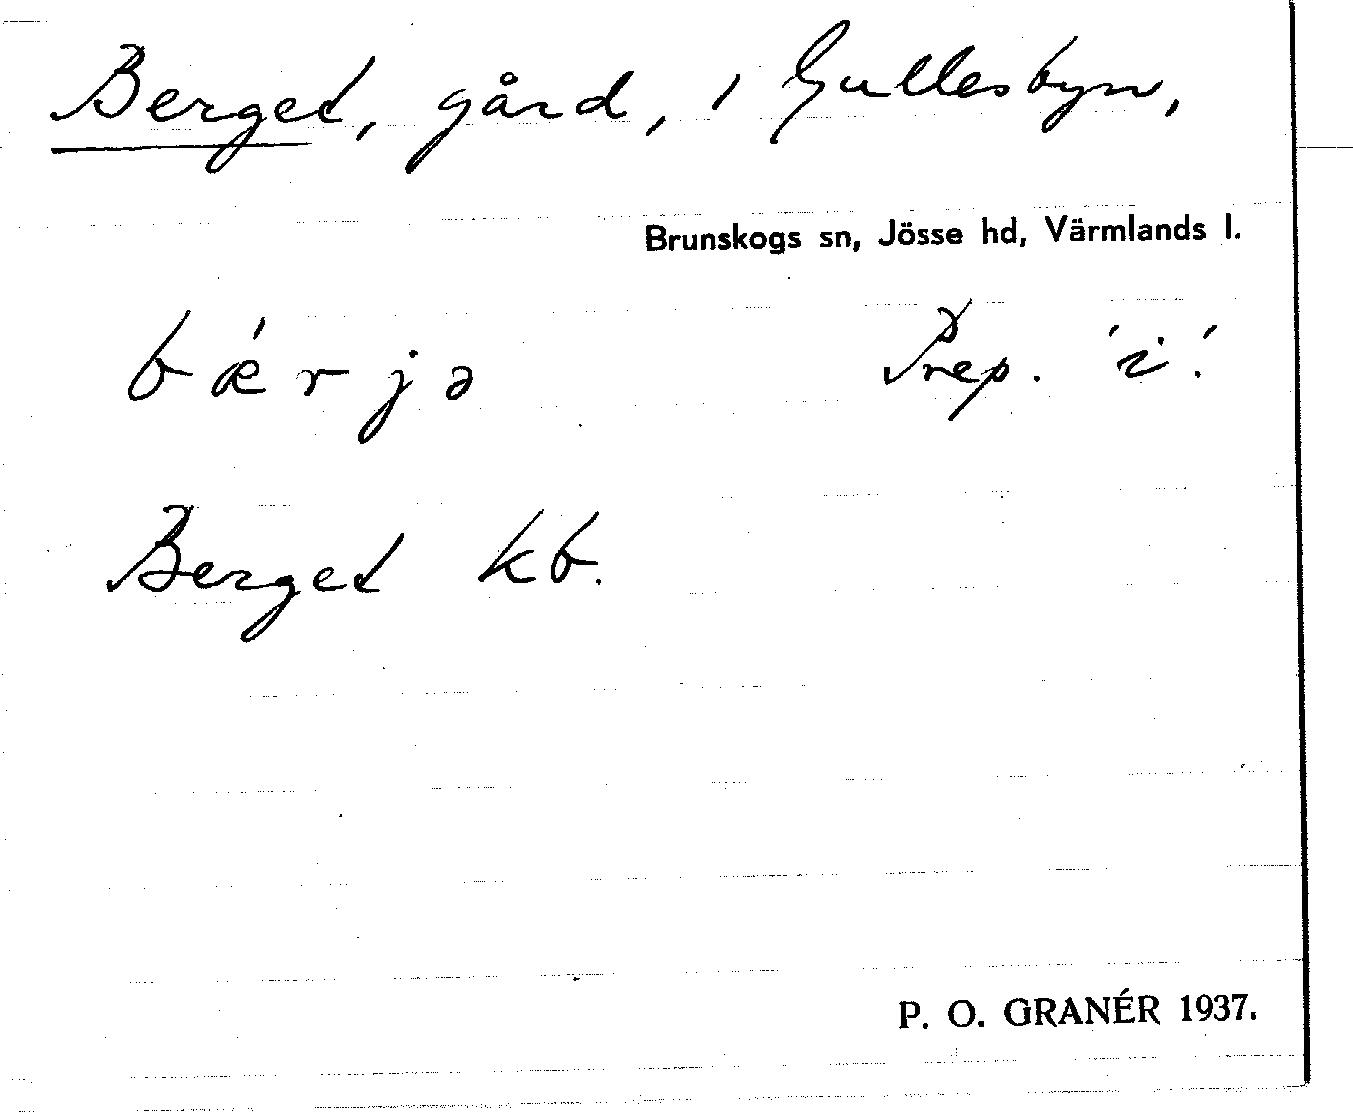 Berget, gård, i Gullesbyn,
Brunskogs sn, Jösse hd, Värmlands l.
bǽrjə Prep. 'i'.
Berget kb.
P. O. GRANÉR 1937.